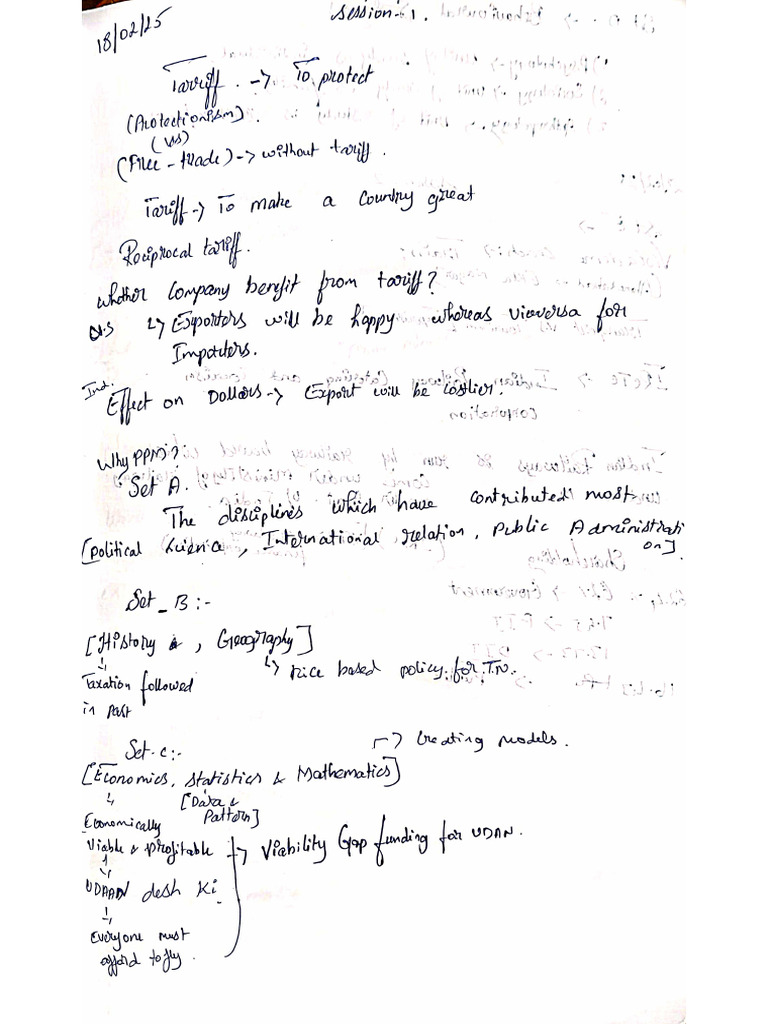 18/02/25
Session-1.
Tarriff -> To protect
(Protectionism).
(Vs)
(Free-trade) -> without tariff.
Tariff -> To make a country great
Reciprocal tariff.
Whether Company benefit from tariff?
↳ Exporters will be happy whereas viceversa for
Importers.
Ind.
Effect on Dollars -> Export will be costlier.
Why PPM?
Set A.
The disciplines which have contributed most
[Political Science, International relation, Public Administrati
on].
Set_B:-
[History, Geography]
↳ rice based policy for T.N.
Taxation followed
in past
Set-C:-
-> Creating models.
[Economics, Statistics & Mathematics]
[Data &
Pattern]
Economically
Viable & Profitable
-> Viability Gap funding for UDAN.
UDAAN desh Ki
Everyone must
afford to fly.